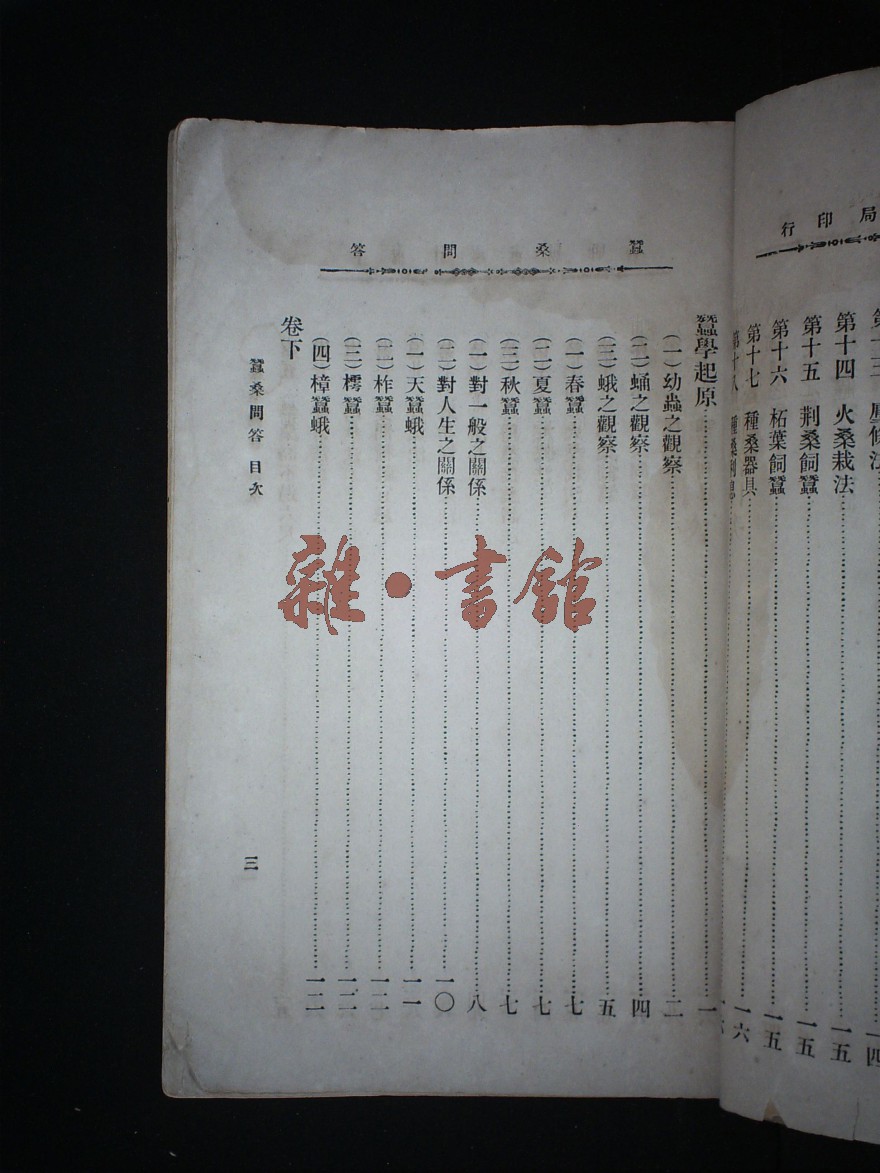 局印行
第十四　火桑栽法……一五
第十五　荆桑飼蠶……一五
第十六　柘葉飼蠶……一五
第十七　種桑器具……一六
第十八
蠶桑問答
蠶學起原……一
(一)幼蟲之觀察……二
(二)蛹之觀察……四
(三)蛾之觀察……五
(一)春蠶……七
(二)夏蠶……七
(三)秋蠶……七
(一)對一般之關係……八
(二)對人生之關係……一〇
(一)天蠶蛾……一一
(二)柞蠶……一二
(三)樗蠶……一二
(四)樟蠶蛾……一二
卷下
蠶桑問答　目次
三
雜·書館